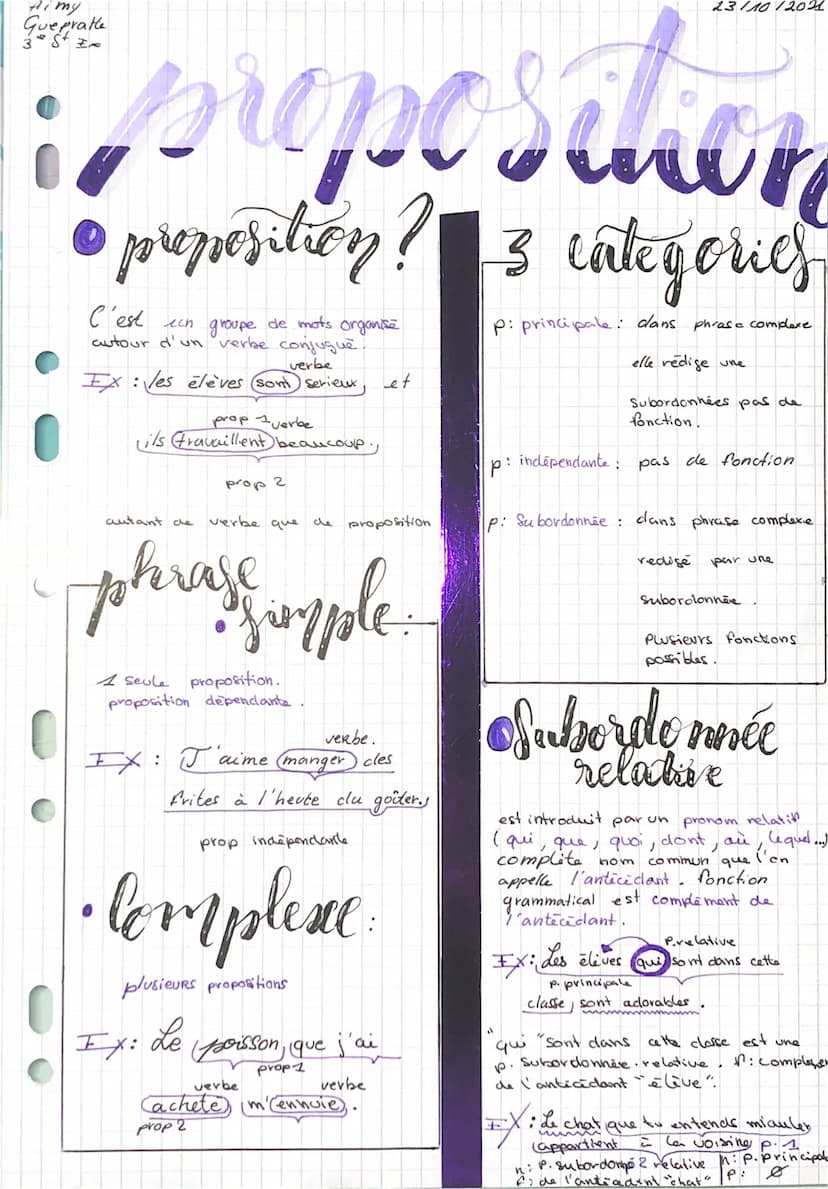 Aimy
Guepratte
3e St Ex
23/10/2021
proposition
proposition ?
C'est un groupe de mots organisé
autour d'un verbe conjugué.
verbe
EX : les élèves sont serieux, et
prop 1 verbe
ils travaillent beaucoup.
prop 2
autant de verbe que de proposition
phrase
simple :
1 seule proposition.
proposition dépendante.
verbe.
EX : J'aime manger des
frites à l'heute du goûter.
prop indépendante
Complexe :
plusieurs propositions
Ex : Le poisson, que j'ai
prop 1
verbe verbe
acheté, m'ennuie.
prop 2
3 catégories
p: principale : dans phrase complexe
elle rédige une
subordonnées pas de
fonction.
p: indépendante : pas de fonction
p: Subordonnée : dans phrase complexe
redigé par une
subordonnée.
Plusieurs fonctions
possibles.
Subordonnée
relative
est introduit par un pronom relatif
(qui, que, quoi, dont, où, lequel...)
complète nom commun que l'on
appelle l'antécédant. fonction
grammatical est complément de
l'antécédant.
P.relative
EX: Les élèves qui sont dans cette
p. principale
classe, sont adorables.
"qui "sont dans cette classe est une
p. subordonnée. relative. f: complemen
de l'antécédant "élève".
EX: Le chat que tu entends miauler
appartient à la voisine p. 1
n: P. subordoné 2 relative n: p. principal
f: de l'antécédent "chat" f: Ø